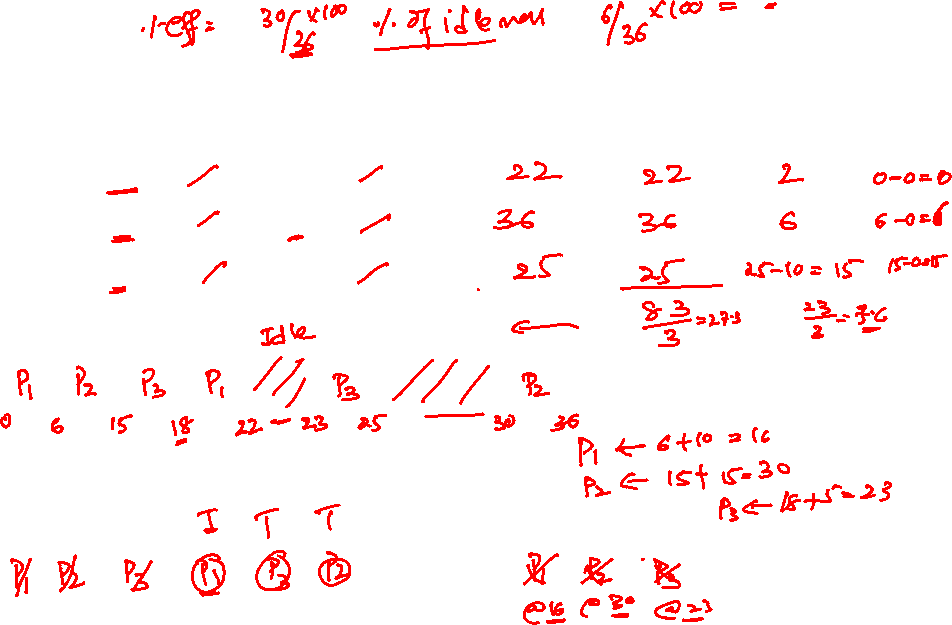 ·/·eff= 30/36 ×100 ·/· of idleness 6/36 ×100 =
22 22 2 0-0=0
36 36 6 6-0=6
25 25 25-10=15 15-0=15
83/3 =27.3 23/3 =7.6
Idle
P1 P2 P3 P1 P3 P2
0 6 15 18 22 - 23 25 30 36
P1 ← 6+10=16
P2 ← 15+15=30
P3 ← 18+5=23
I T T
P1 P2 P3 P1 P3 P2
P1 P2 P3
@16 @30 @23